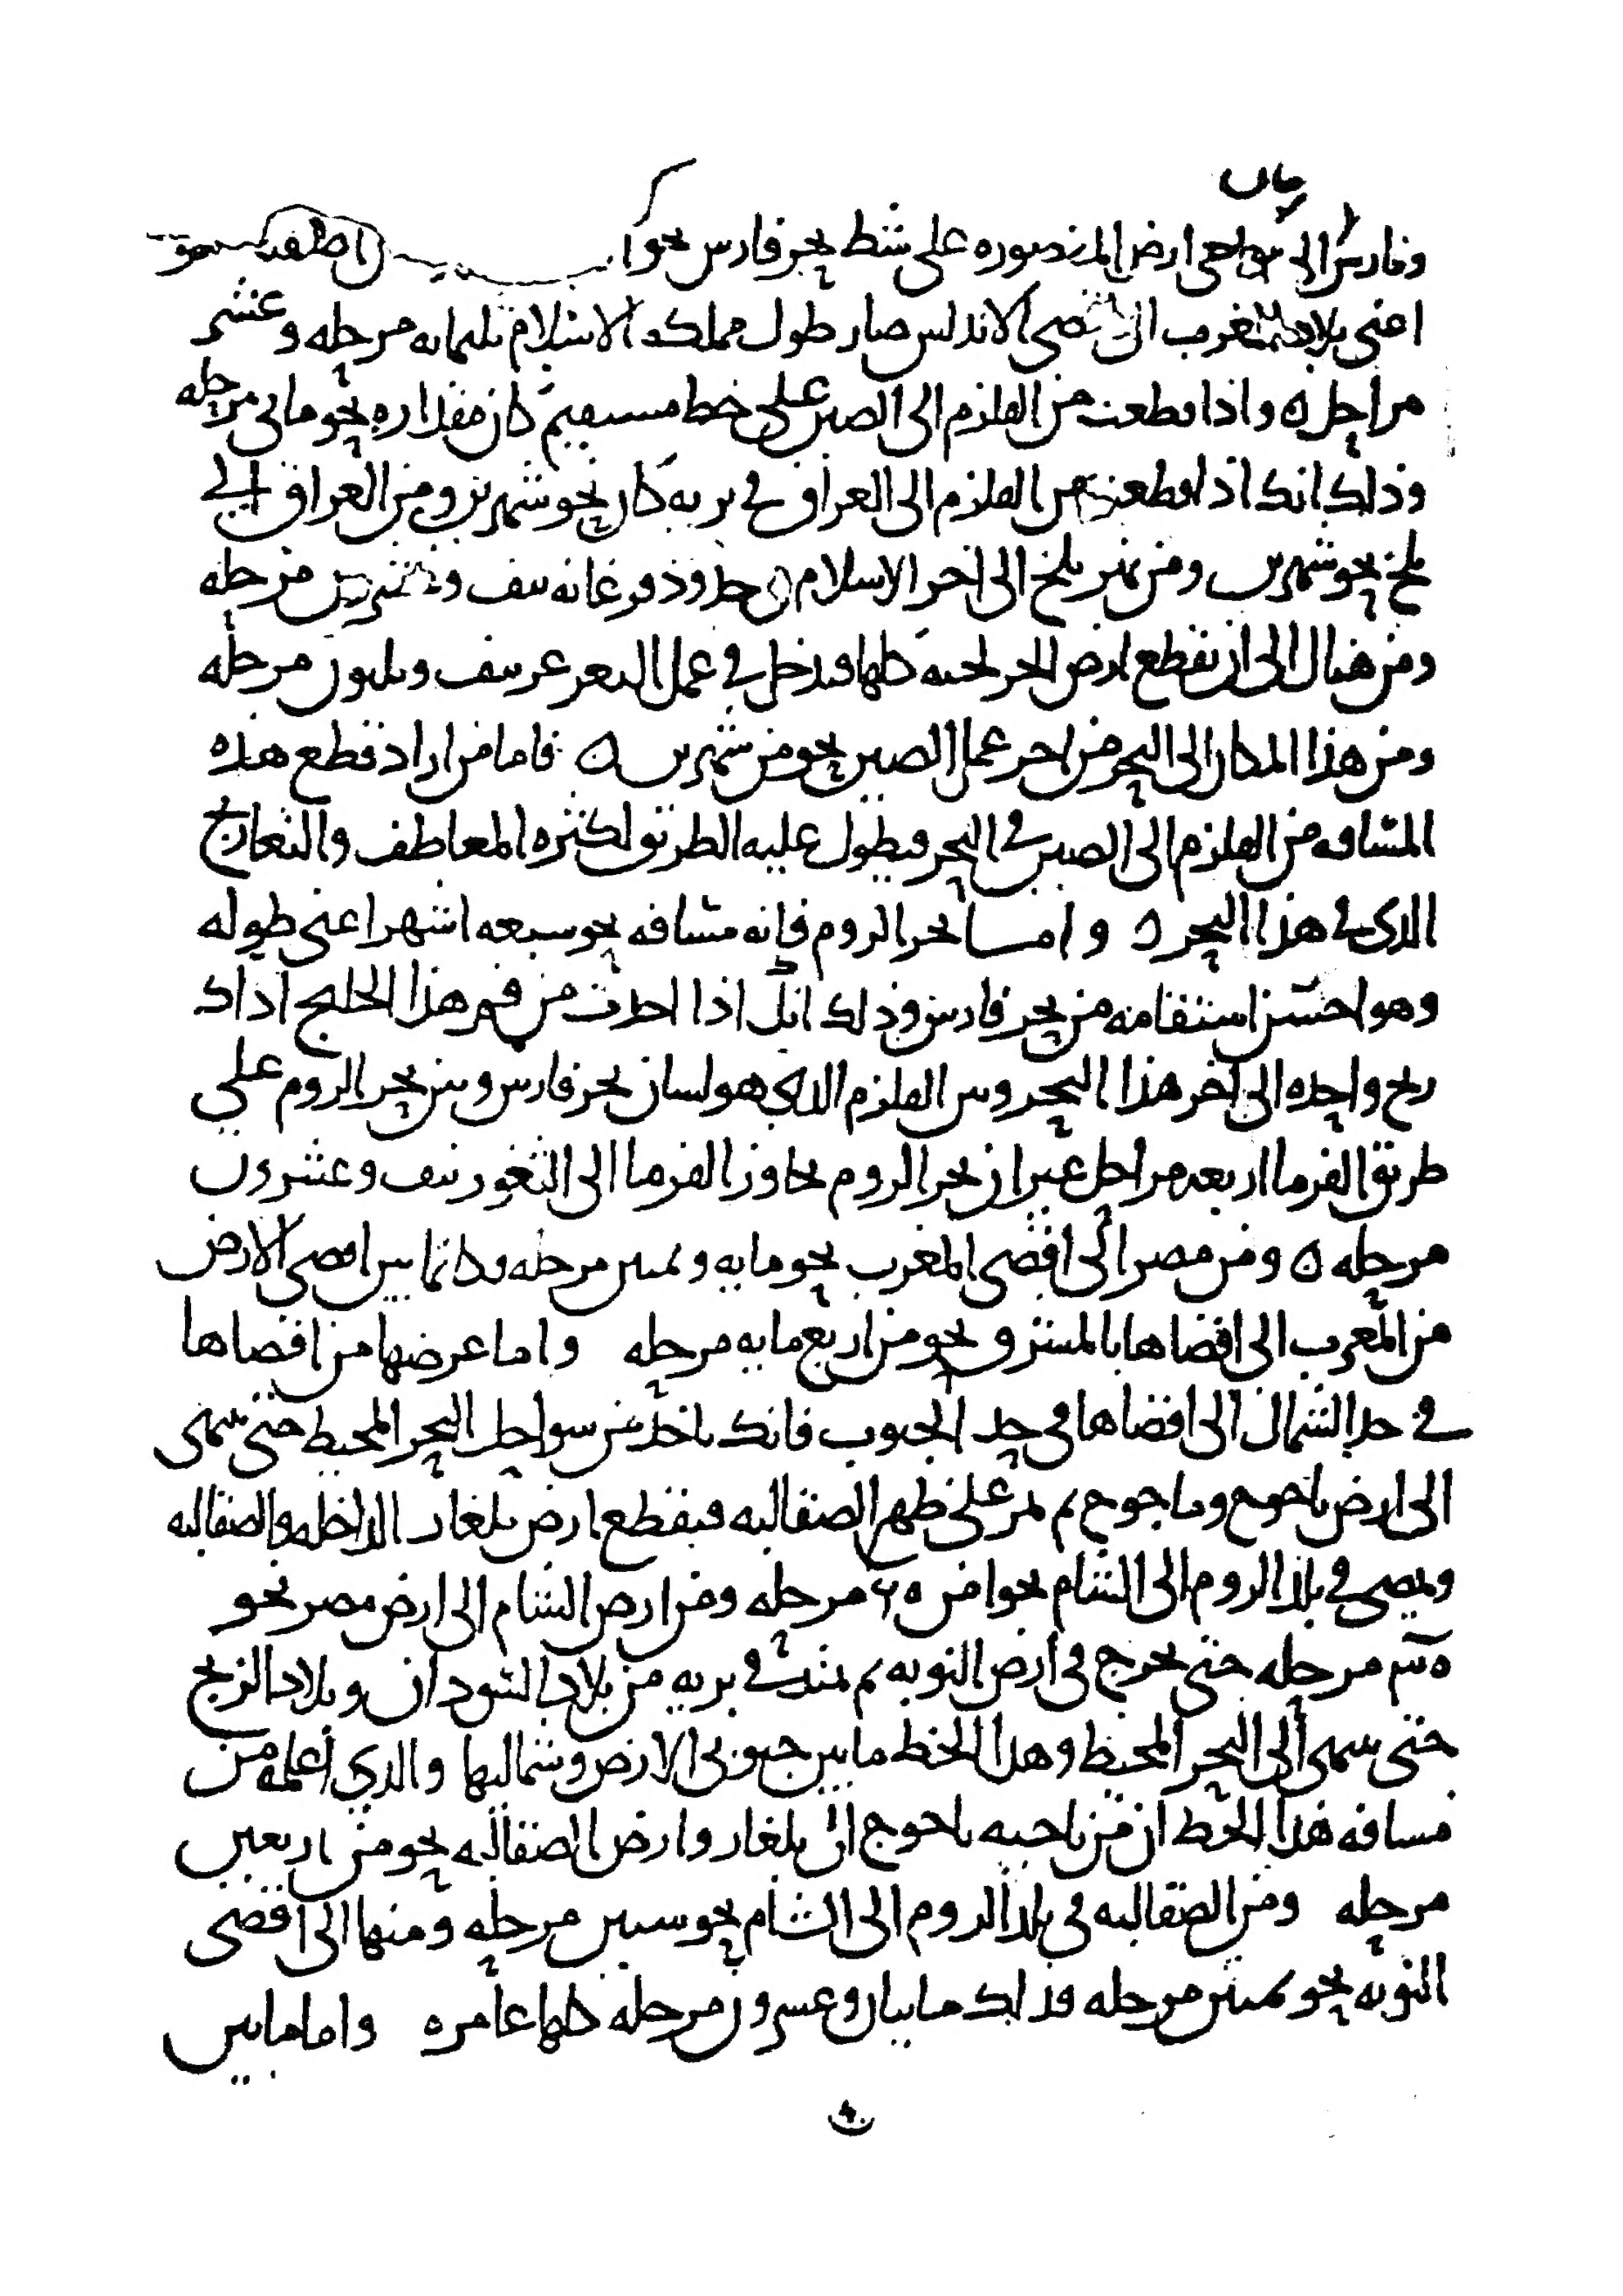 مان
وفارس الى ارض المنصوره على شط بحر فارس نحوا
اعنى بلاد المغرب الى اقصى الاندلس صار طول مملكه الاسلام ثلثمايه مرحله وعشر
مراحل ه واذا قطعت من القلزم الى الصين على خط مستقيم كان مقداره نحو مايى مرحله
وذلك انك اذا قطعت من القلزم الى العراق فى بريه كان نحو شهر ومن العراق الى
بلخ نحو شهرين ومن نهر بلخ الى اخر الاسلام فى حدود فرغانه نيف وعشرين مرحله
ومن هناك الى ان تقطع ارض الخرلخيه كلها فتدخل فى عمل التغزغز نيف وثلثون مرحله
ومن هذا المكان الى البحر من اخر عمل الصين نحو من شهرين ه فاما من اراد قطع هذه
المسافه من القلزم الى الصين فى البحر فيطول عليه الطريق لكثره المعاطف والتعاريج
الذى فى هذا البحر ه واما بحر الروم فانه مسافه نحو سبعه اشهر اعنى طوله
وهو احسن استقامه من بحر فارس وذلك انك اذا اخذت من فم هذا الخليج اداك
ريح واحده الى اخر هذا البحر وبين القلزم الذى هو لسان بحر فارس وبين بحر الروم على
طريق الفرما اربعه مراحل غير ان بحر الروم يجاوز الفرما الى الثغور نيف وعشرون
مرحله ه ومن مصر الى اقصى المغرب نحو مايه وثمنين مرحله فكانما بين اقصى الارض
من المغرب الى اقصاها بالمشرق نحو من اربع مايه مرحله واما عرضها من اقصاها
فى حد الشمال الى اقصاها فى حد الجنوب فانك تاخذ من سواحل البحر المحيط حتى تنتهى
الى ارض ياجوج وماجوج ثم تمر على ظهر الصقالبه فيقطع ارض بلغار الداخله والصقالبه
ويمضى فى بلد الروم الى الشام نحوا من مرحله ومن ارض الشام الى ارض مصر نحو
مرحله حتى يخرج فى ارض النوبه ثم تمتد فى بريه من بلاد السودان وبلاد الزنج
حتى ينتهى الى البحر المحيط وهذا الخط ما بين جنوبى الارض وشماليها والذى اعلمه من
مسافه هذا الخط ان من ناحيه ياجوج الى بلغار وارض الصقالبه نحو من اربعين
مرحله ومن الصقالبه فى بلد الروم الى الشام نحو ستين مرحله ومنها الى اقصى
النوبه نحو ثمنين مرحله فذلك مايتان وعشرون مرحله كلها عامره واما ما بين